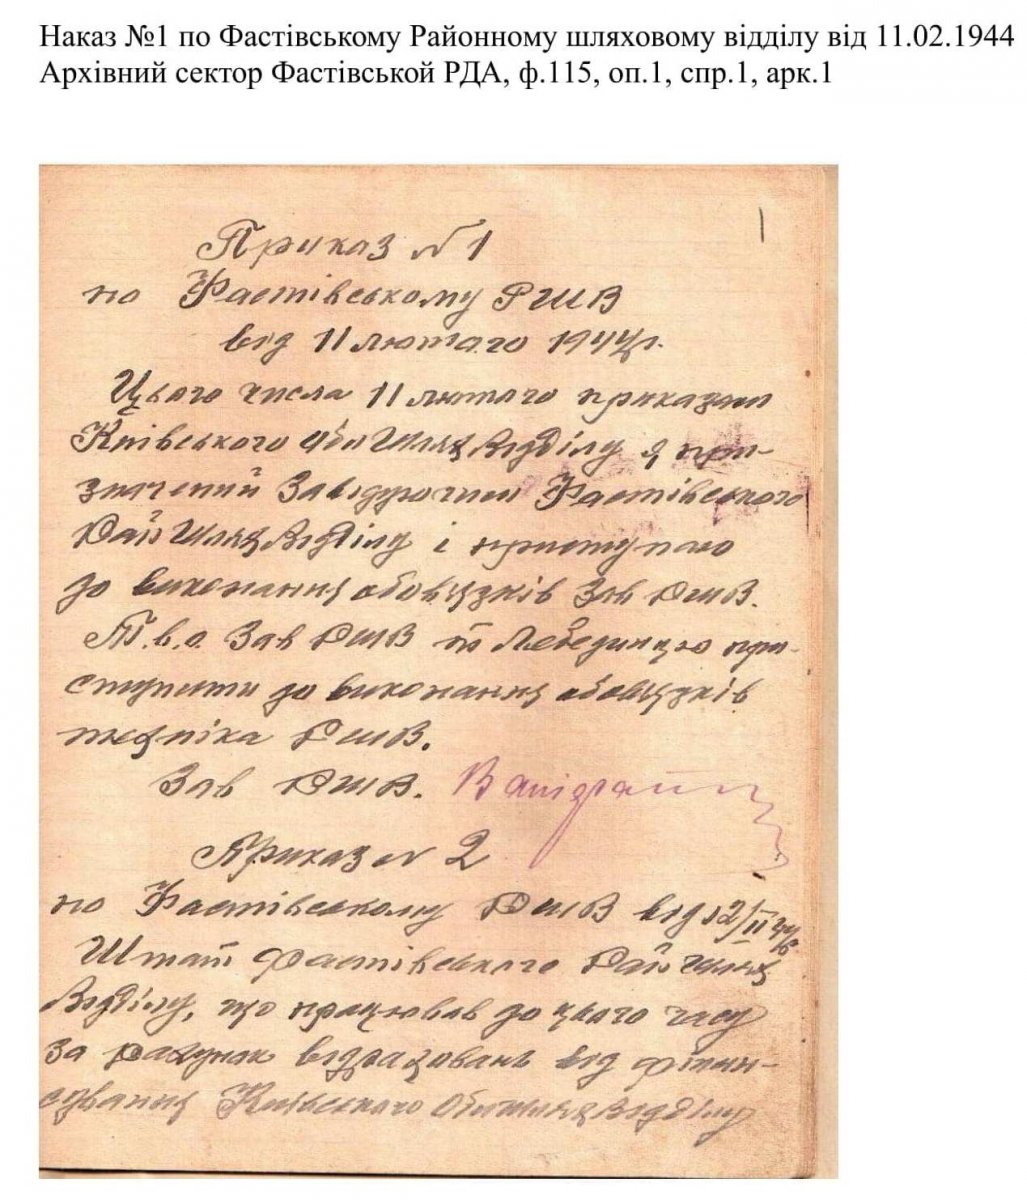 Наказ №1 по Фастівському Районному шляховому відділу від 11.02.1944
Архівний сектор Фастівськой РДА, ф.115, оп.1, спр.1, арк.1
1
Приказ №1
по Фастівському РШВ
від 11 лютого 1944р.
Цього числа 11 лютого приказом
Київського ОблШляхВідділу я при-
значений Завідуючим Фастівського
РайШляхВідділу і приступаю
до виконання обовязків Зав РШВ.
Т.в.о. Зав РШВ т. Лебединцю при-
ступити до виконання обовязків
техніка РШВ.
Зав РШВ.
Приказ № 2
по Фастівському РШВ від 12/II 44р
Штат Фастівського РайШлях
Відділу, що працював до цього часу
за рахунок відрахувань від фінан-
сування Київського ОблШляхВідділу